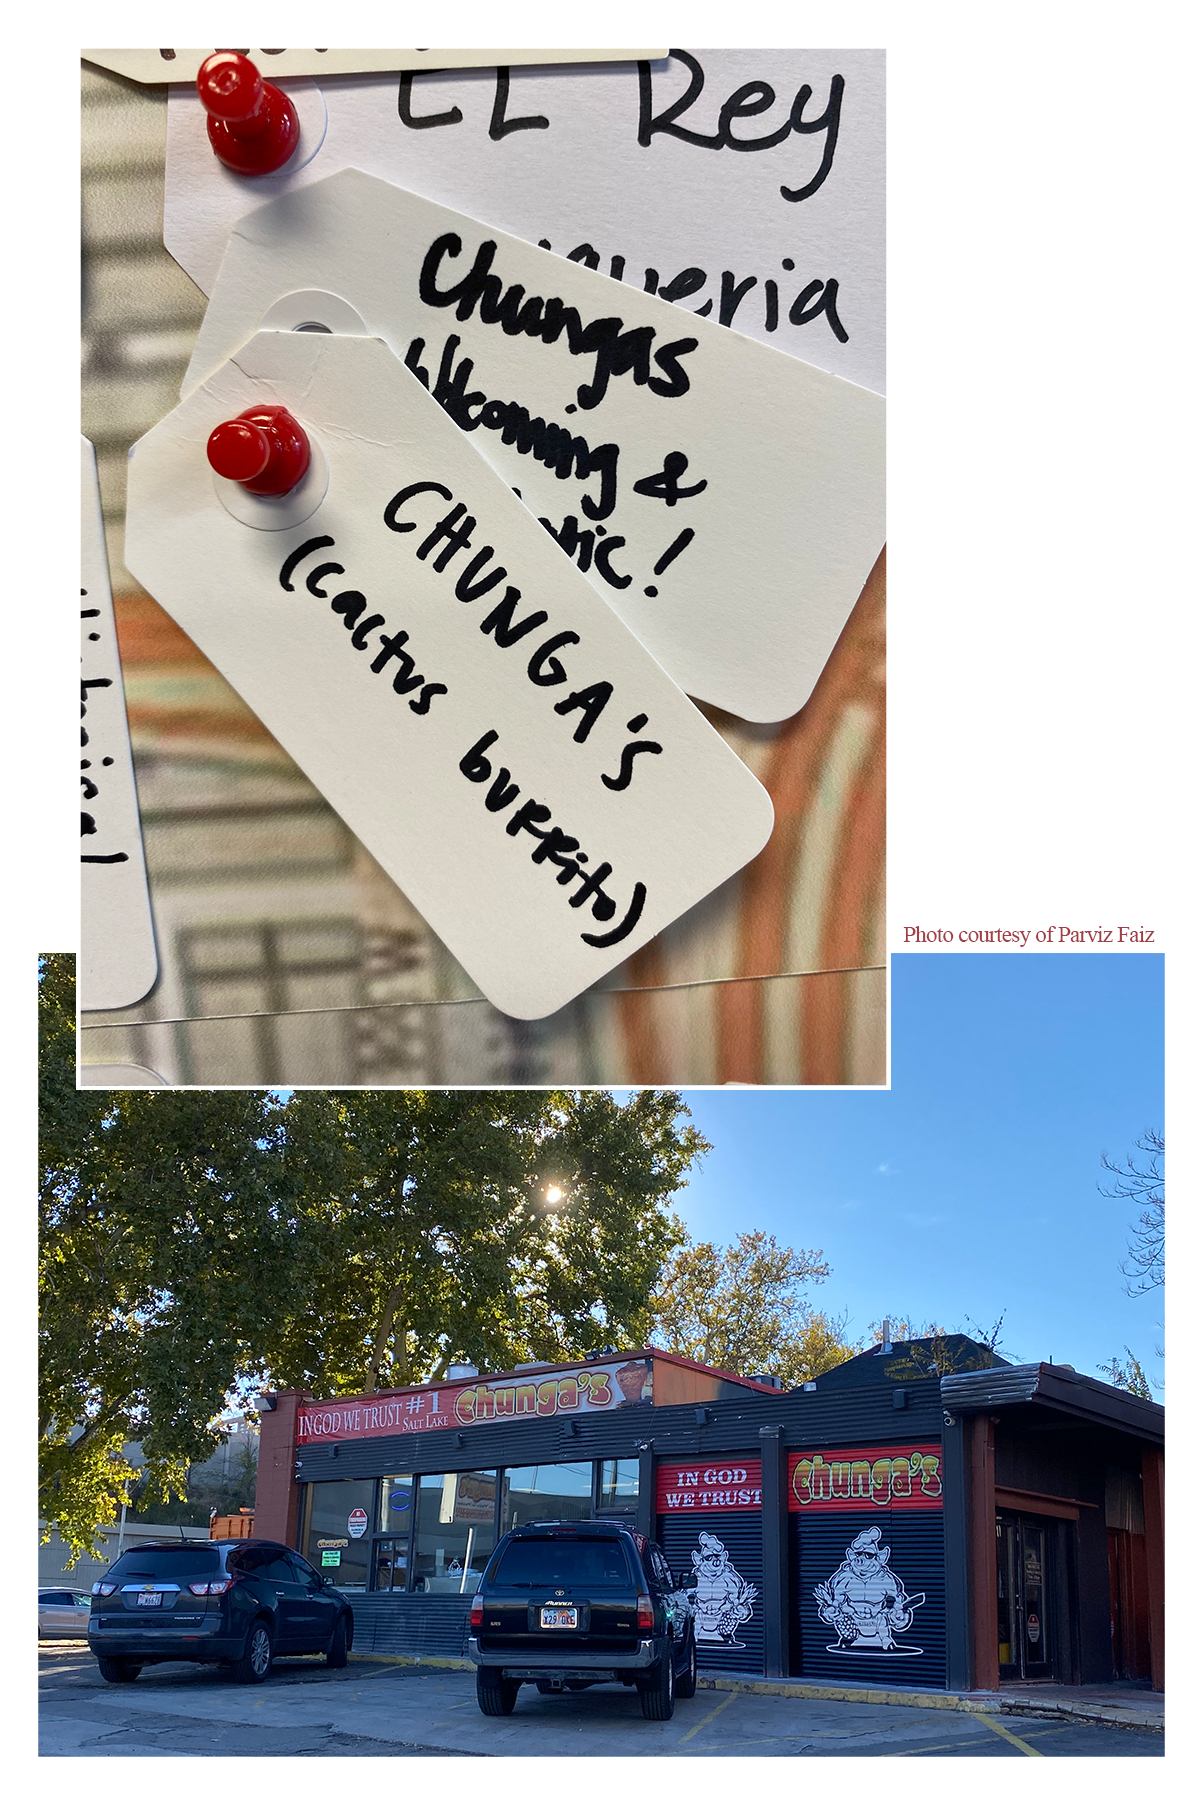 EL Rey
Chungas
Welcoming &
!
CHUNGA'S
(cactus
burrito)
Photo courtesy of Parviz Faiz
IN GOD WE TRUST #1
SALT LAKE
Chunga's
IN GOD
WE TRUST
Chunga's
4RUNNER